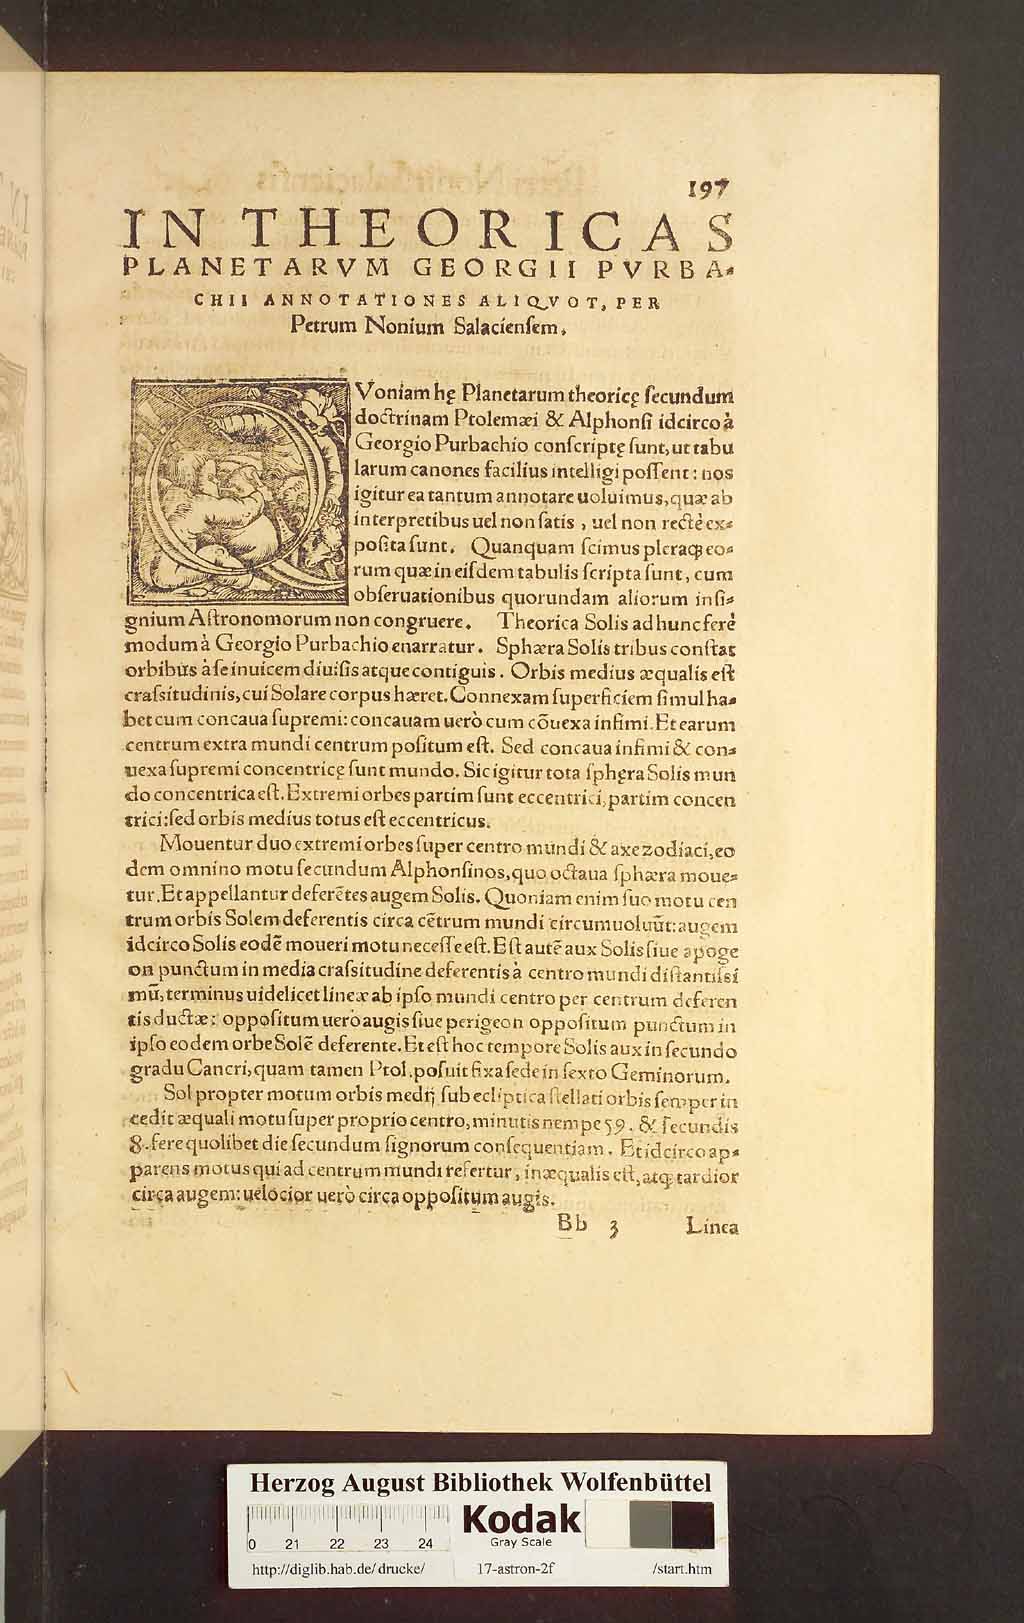 197
IN THEORICAS
PLANETARVM GEORGII PVRBA-
CHII ANNOTATIONES ALIQVOT, PER
Petrum Nonium Salacienſem.
QVoniam hę Planetarum theoricę ſecundum
doctrinam Ptolemæi & Alphonſi idcirco à
Georgio Purbachio conſcriptę ſunt, ut tabu
larum canones facilius intelligi poſſent: nos
igitur ea tantum annotare uoluimus, quæ ab
interpretibus uel non ſatis, uel non rectè ex-
poſita ſunt. Quanquam ſcimus pleraqꝫ eo-
rum quæ in eiſdem tabulis ſcripta ſunt, cum
obſeruationibus quorundam aliorum inſi-
gnium Aſtronomorum non congruere. Theorica Solis ad hunc ferè
modum à Georgio Purbachio enarratur. Sphæra Solis tribus conſtat
orbibus à ſe inuicem diuiſis atque contiguis. Orbis medius æqualis eſt
craſsitudinis, cui Solare corpus hæret. Connexam ſuperficiem ſimul ha-
bet cum concaua ſupremi: concauam uerò cum cõuexa infimi. Et earum
centrum extra mundi centrum poſitum eſt. Sed concaua infimi & con-
uexa ſupremi concentricę ſunt mundo. Sic igitur tota ſphęra Solis mun
do concentrica eſt. Extremi orbes partim ſunt eccentrici, partim concen
trici: ſed orbis medius totus eſt eccentricus.
Mouentur duo extremi orbes ſuper centro mundi & axe zodiaci, eo
dem omnino motu ſecundum Alphonſinos, quo octaua ſphæra moue-
tur. Et appellantur deferẽtes augem Solis. Quoniam enim ſuo motu cen
trum orbis Solem deferentis circa cẽtrum mundi circumuoluũt: augem
idcirco Solis eodẽ moueri motu neceſſe eſt. Eſt autẽ aux Solis ſiue apoge
on punctum in media craſsitudine deferentis à centro mundi diſtantiſsi
mũ, terminus uidelicet lineæ ab ipſo mundi centro per centrum deferen
tis ductæ: oppoſitum uerò augis ſiue perigeon oppoſitum punctum in
ipſo eodem orbe Solẽ deferente. Et eſt hoc tempore Solis aux in ſecundo
gradu Cancri, quam tamen Ptol. poſuit fixa ſede in ſexto Geminorum.
Sol propter motum orbis medij ſub ecliptica ſtellati orbis ſemper in
cedit æquali motu ſuper proprio centro, minutis nempe 59. & ſecundis
8. fere quolibet die ſecundum ſignorum conſequentiam. Et idcirco ap-
parens motus qui ad centrum mundi refertur, inæqualis eſt, atqꝫ tardior
circa augem: uelocior uerò circa oppoſitum augis.
Bb 3 Linea
Herzog August Bibliothek Wolfenbüttel
0 21 22 23 24
Kodak
Gray Scale
http://diglib.hab.de/drucke/ 17-astron-2f /start.htm